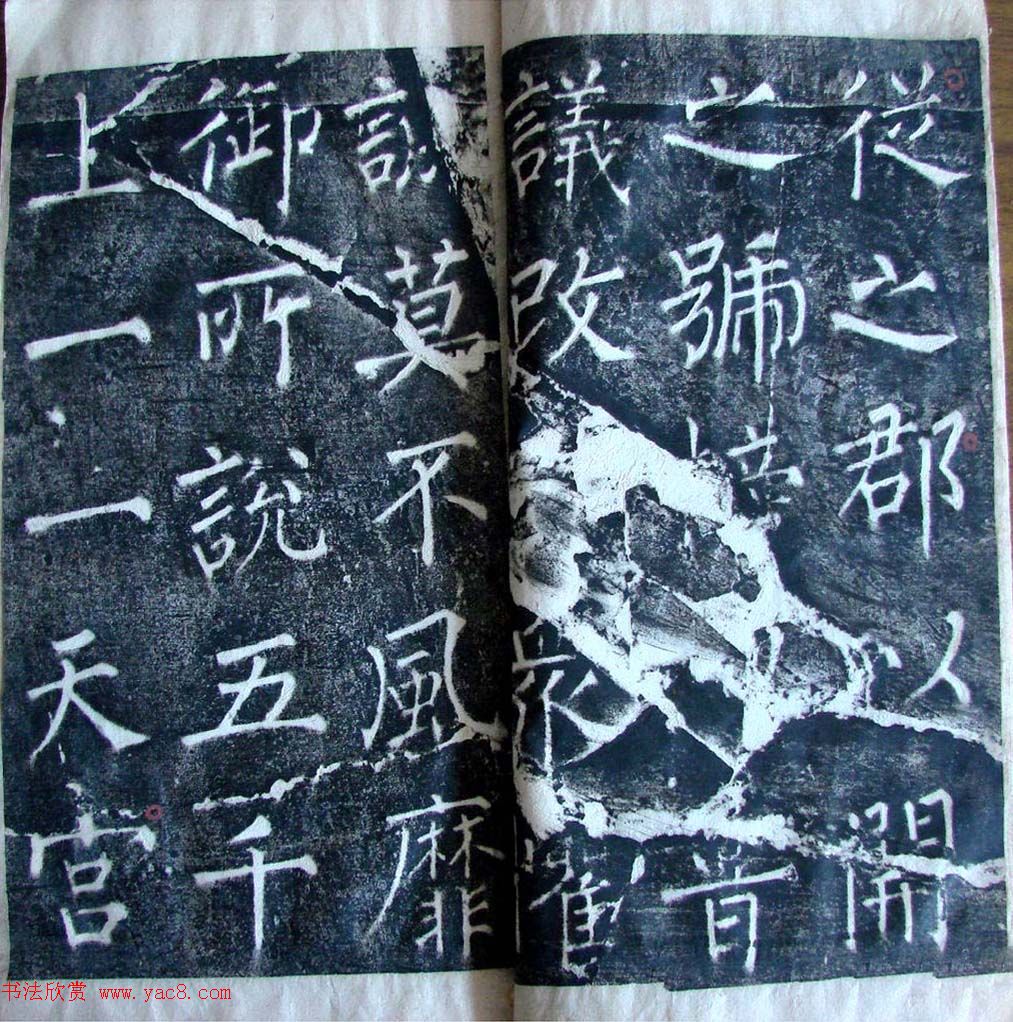 從之郡以開
之號首
議改眾
莫不風靡
御所說五千
上一一天宫
书法欣赏 www.yac8.com